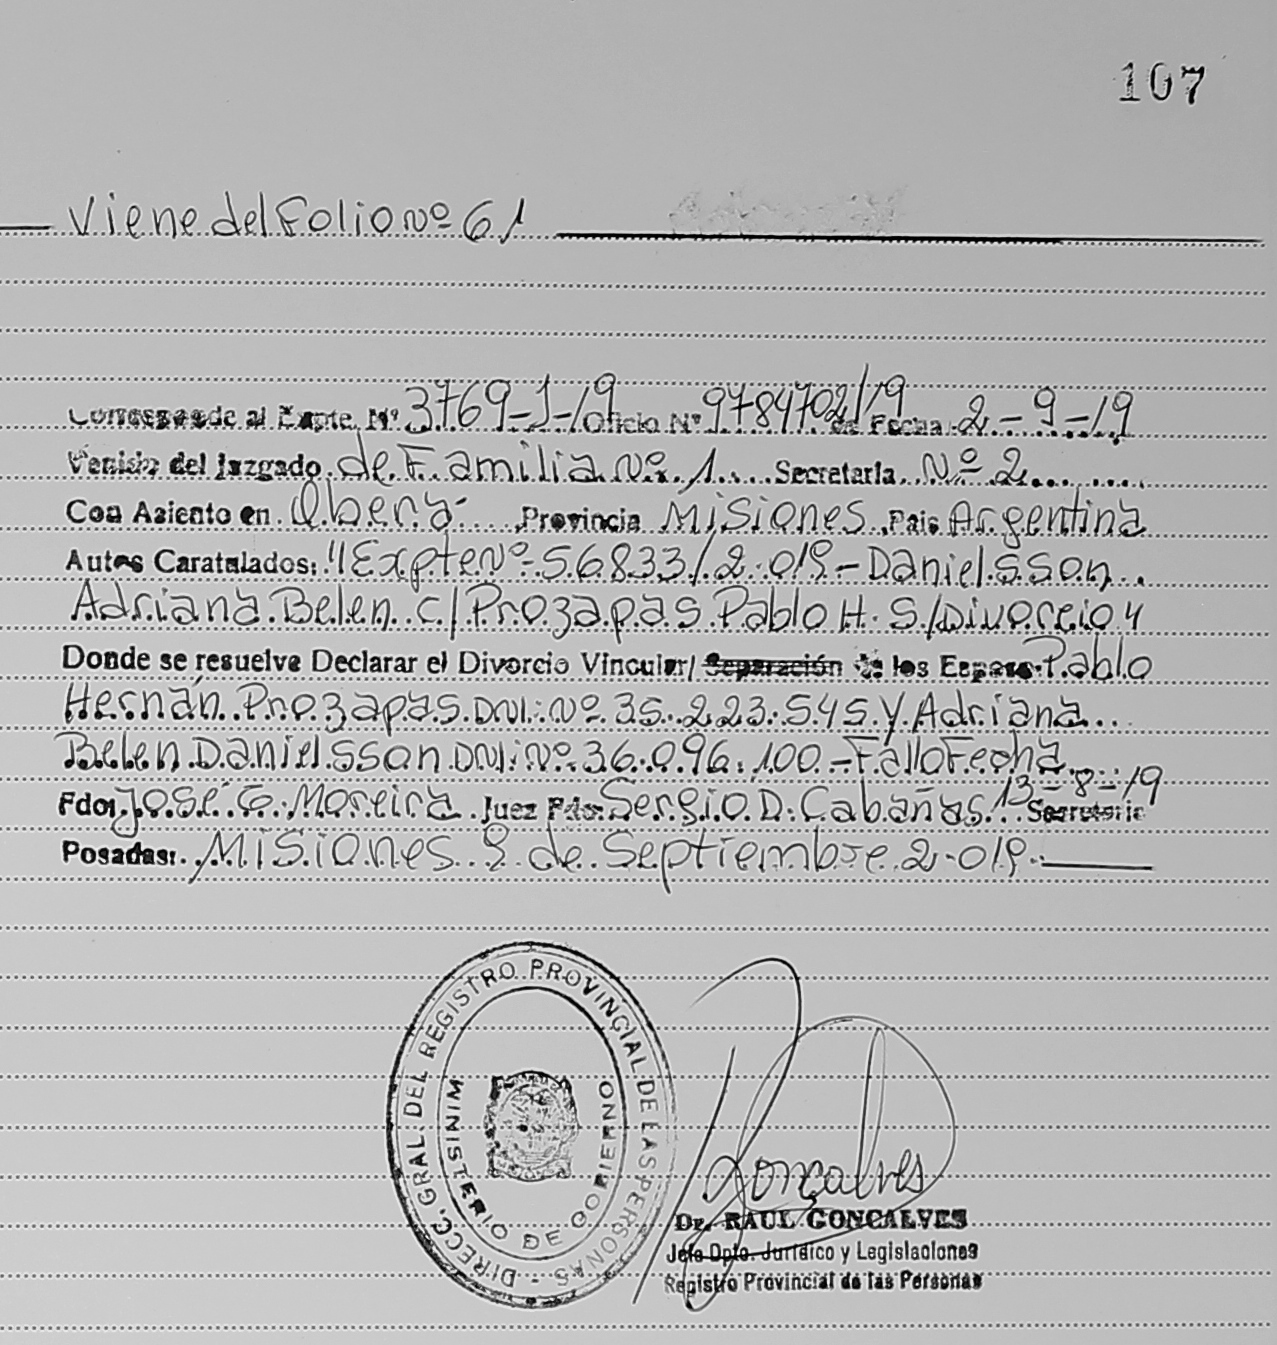 107
Viene del Folio Nº 61
Corresponde al Expte. Nº 3769-1-19 Oficio Nº 9784702/19 de Fecha 2-9-19
Venido del Juzgado de Familia Nº 1 Secretaria Nº 2
Con Asiento en Oberá, Provincia Misiones, Pais Argentina
Autos Caratulados: "Expte Nº 56833/2.019 - Danielsson
Adriana Belen c/ Prozapas Pablo H. S/Divorcio"
Donde se resuelve Declarar el Divorcio Vincular/ Separación de los Esposo: Pablo
Hernán Prozapas. DNI: Nº 35.223.545. Y Adriana
Belen Danielsson DNI: Nº 36.096.100.- Fallo Fecha
13-8-19
Fdo: José G. Moreira. Juez Fdo: Sergio D. Cabañas. Secretario
Posadas: Misiones 9 de Septiembre 2.019.
DIRECC. GRAL. DEL REGISTRO PROVINCIAL DE LAS PERSONAS
MINISTERIO DE GOBIERNO
Gonçalves
Dr. RAUL GONCALVES
Jefe Dpto. Jurídico y Legislaciones
Registro Provincial de las Personas